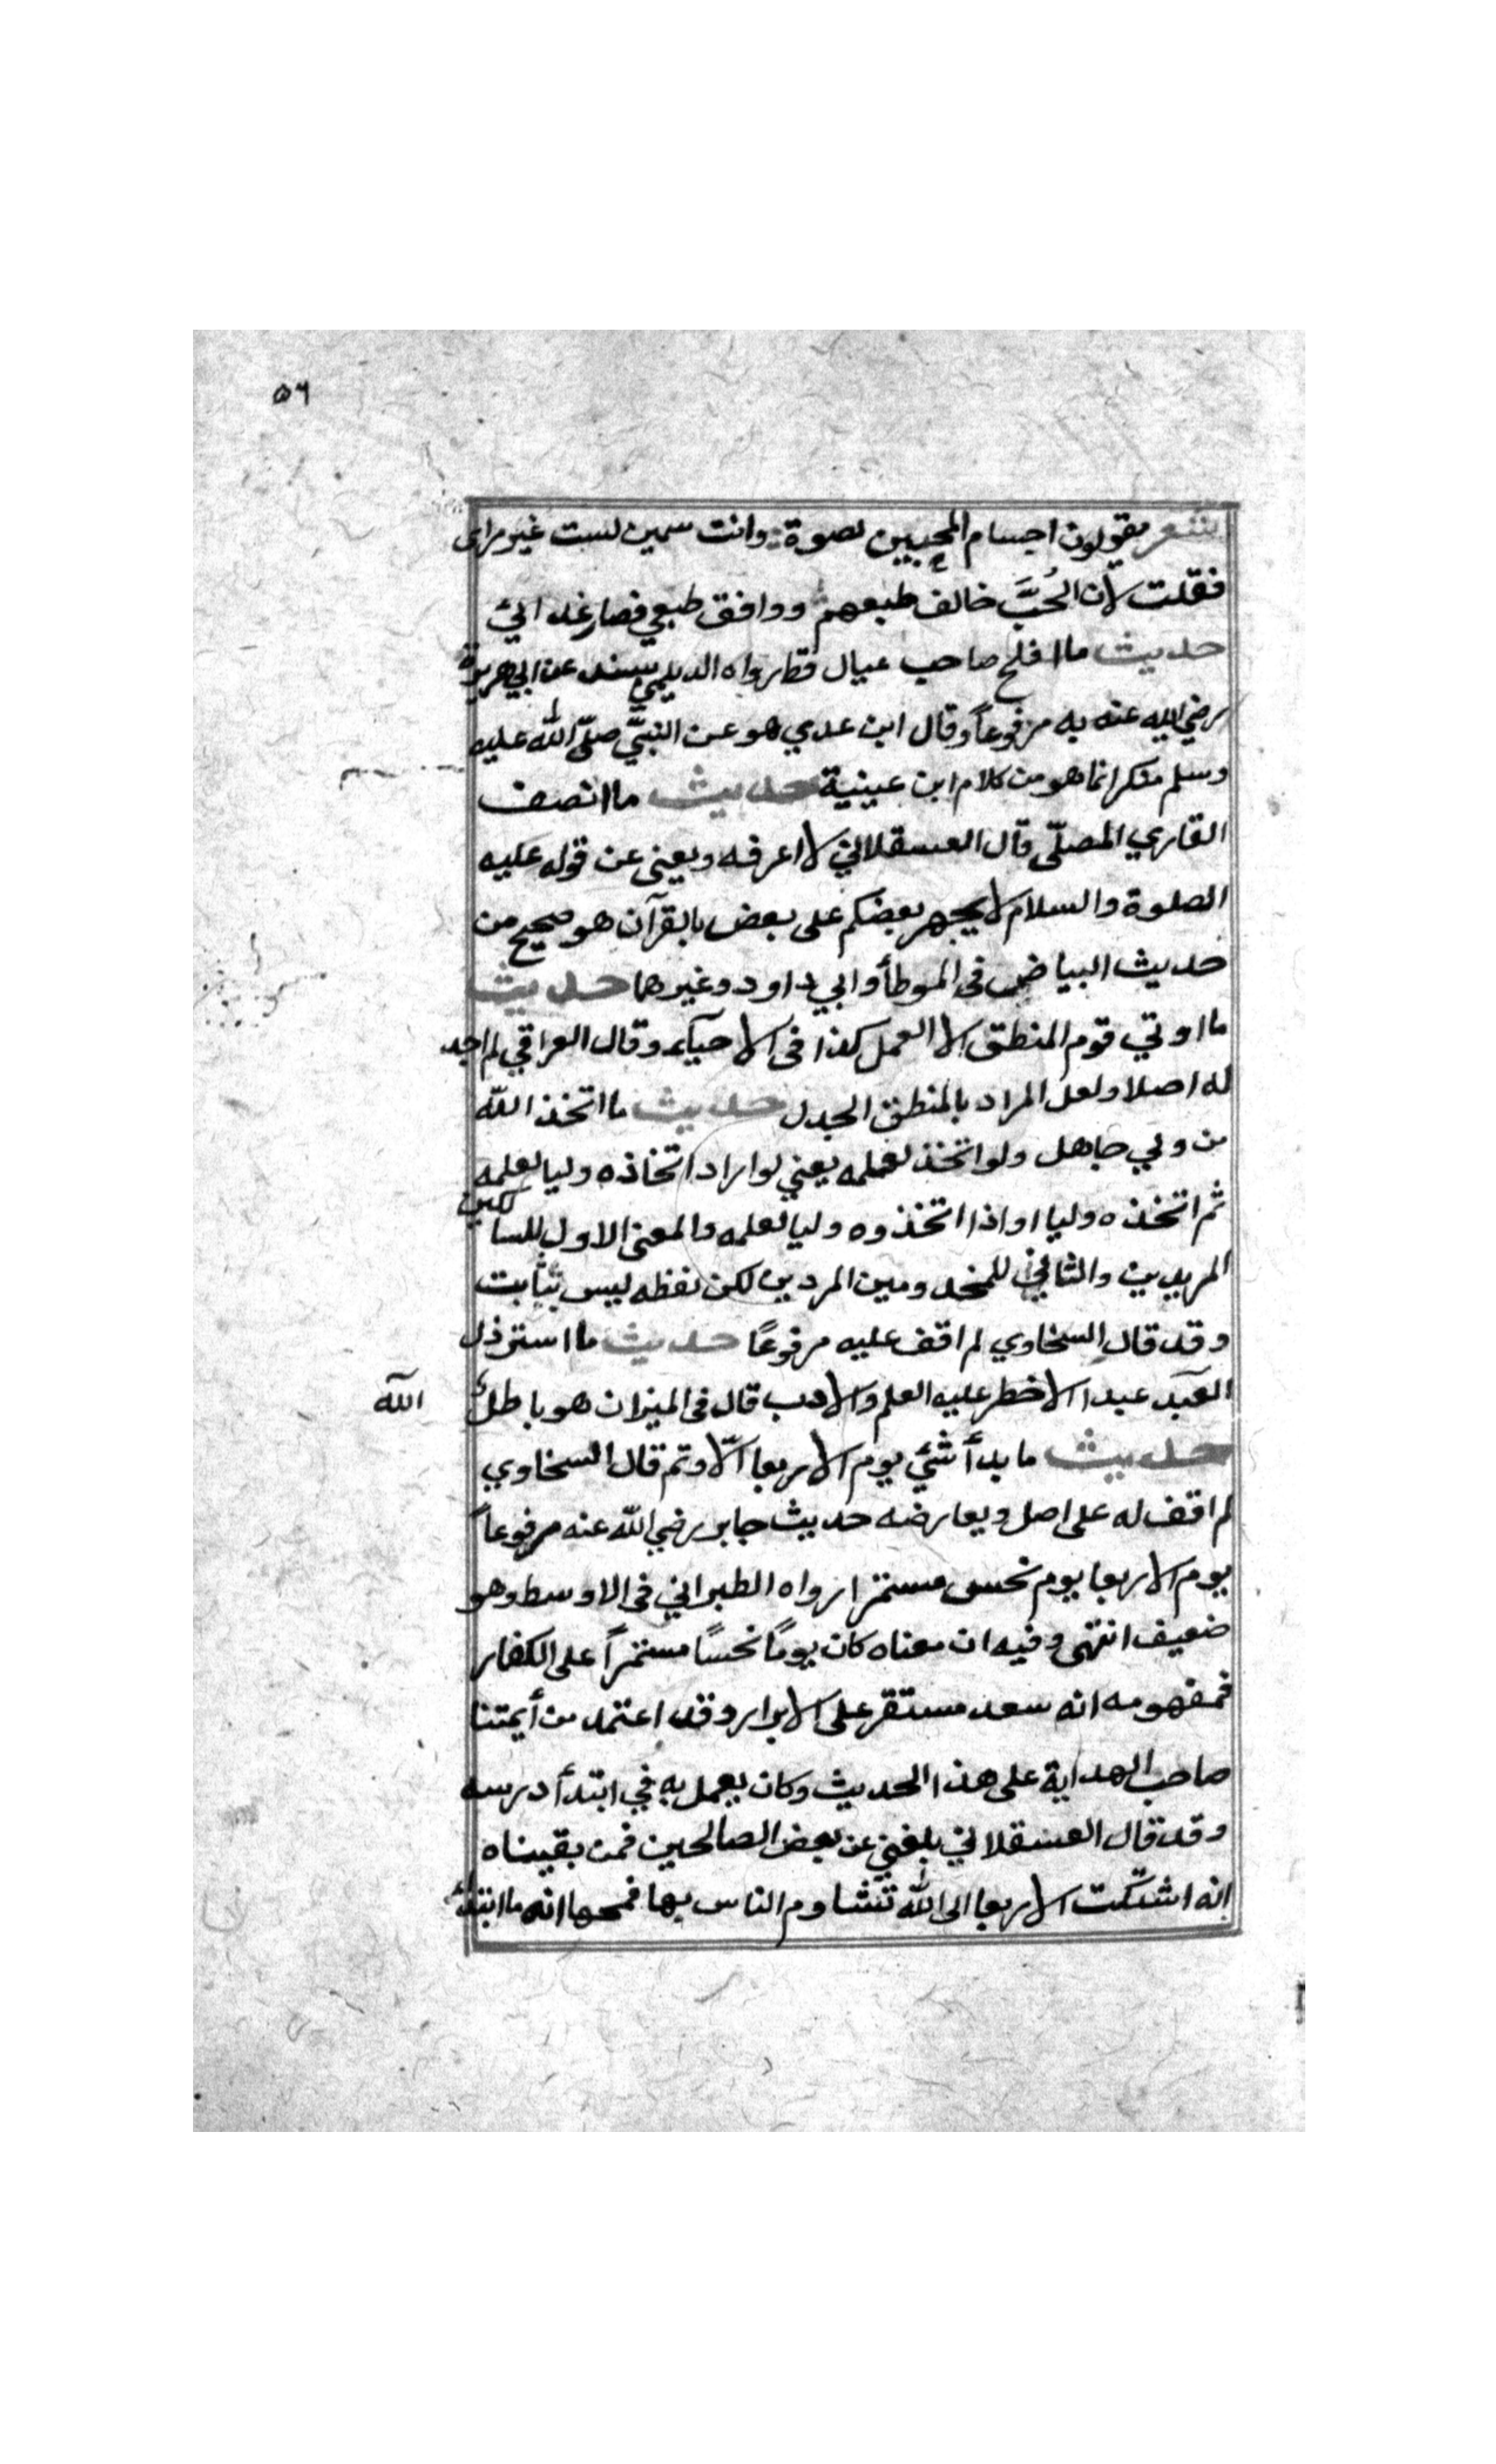 ٥٦
شعر يقولون اجسام المحبين نضوة وانت سمين لست غير مرائى
فقلت لان الحُبَّ خالف طبعهم ووافق طبعي فصار غدائي
حديث ما افلح صاحب عيال قط رواه الديلمي بسند عن ابي هريرة
رضي الله عنه به مرفوعاً وقال ابن عدي هو عن النبيّ صلّى الله عليه
وسلم منكر انما هو من كلام ابن عيينية حديث ما انصف
القاري المصلّى قال العسقلاني لا اعرفه ويغنى عن قوله عليه
الصلوة والسلام لا يجهر بعضكم على بعض بالقرآن هو صحيح من
حديث البياض فى الموطأ وابي داود وغيرهما حديث
ما اوتي قوم المنطق الا العمل كذا فى الاحيآء وقال العراقي لم اجد
له اصلا ولعل المراد بالمنطق الجدل حديث ما اتخذ الله
من ولي جاهل ولو اتخذ لعمله يعني لو اراد اتخاذه وليا لعلمه
ثم اتخذه وليا او اذا اتخذوه وليا لعلمه والمعنى الاول للسالكين
المريدين والثاني للمجذومين المردين لكن لفظه ليس بثابت
وقد قال السخاوي لم اقف عليه مرفوعًا حديث ما استرذل
الله
العبد عبدا الا خطر عليه العلم والادب قال فى الميزان هو باطل
حديث ما بدأ شئي يوم الاربعا الّا وتم قال السخاوي
لم اقف له على اصل ويعارضه حديث جابر رضي الله عنه مرفوعاً
يوم الاربعا يوم نحس مستمر ا رواه الطبراني فى الاوسط وهو
ضعيف انتهى وفيه ان معناه كان يومًا نحسًا مستمراً على الكفار
فمفهومه انه سعد مستقر على الابرار وقد اعتمد من أيمتنا
صاحب الهداية على هذا الحديث وكان يعمل به في ابتدأ درسه
وقد قال العسقلاني بلغني عن بعض الصالحين فمن بقيناه
انه اشتكت الاربعا الى الله تتشاوم الناس بها فمحها انه ما ابتدئ